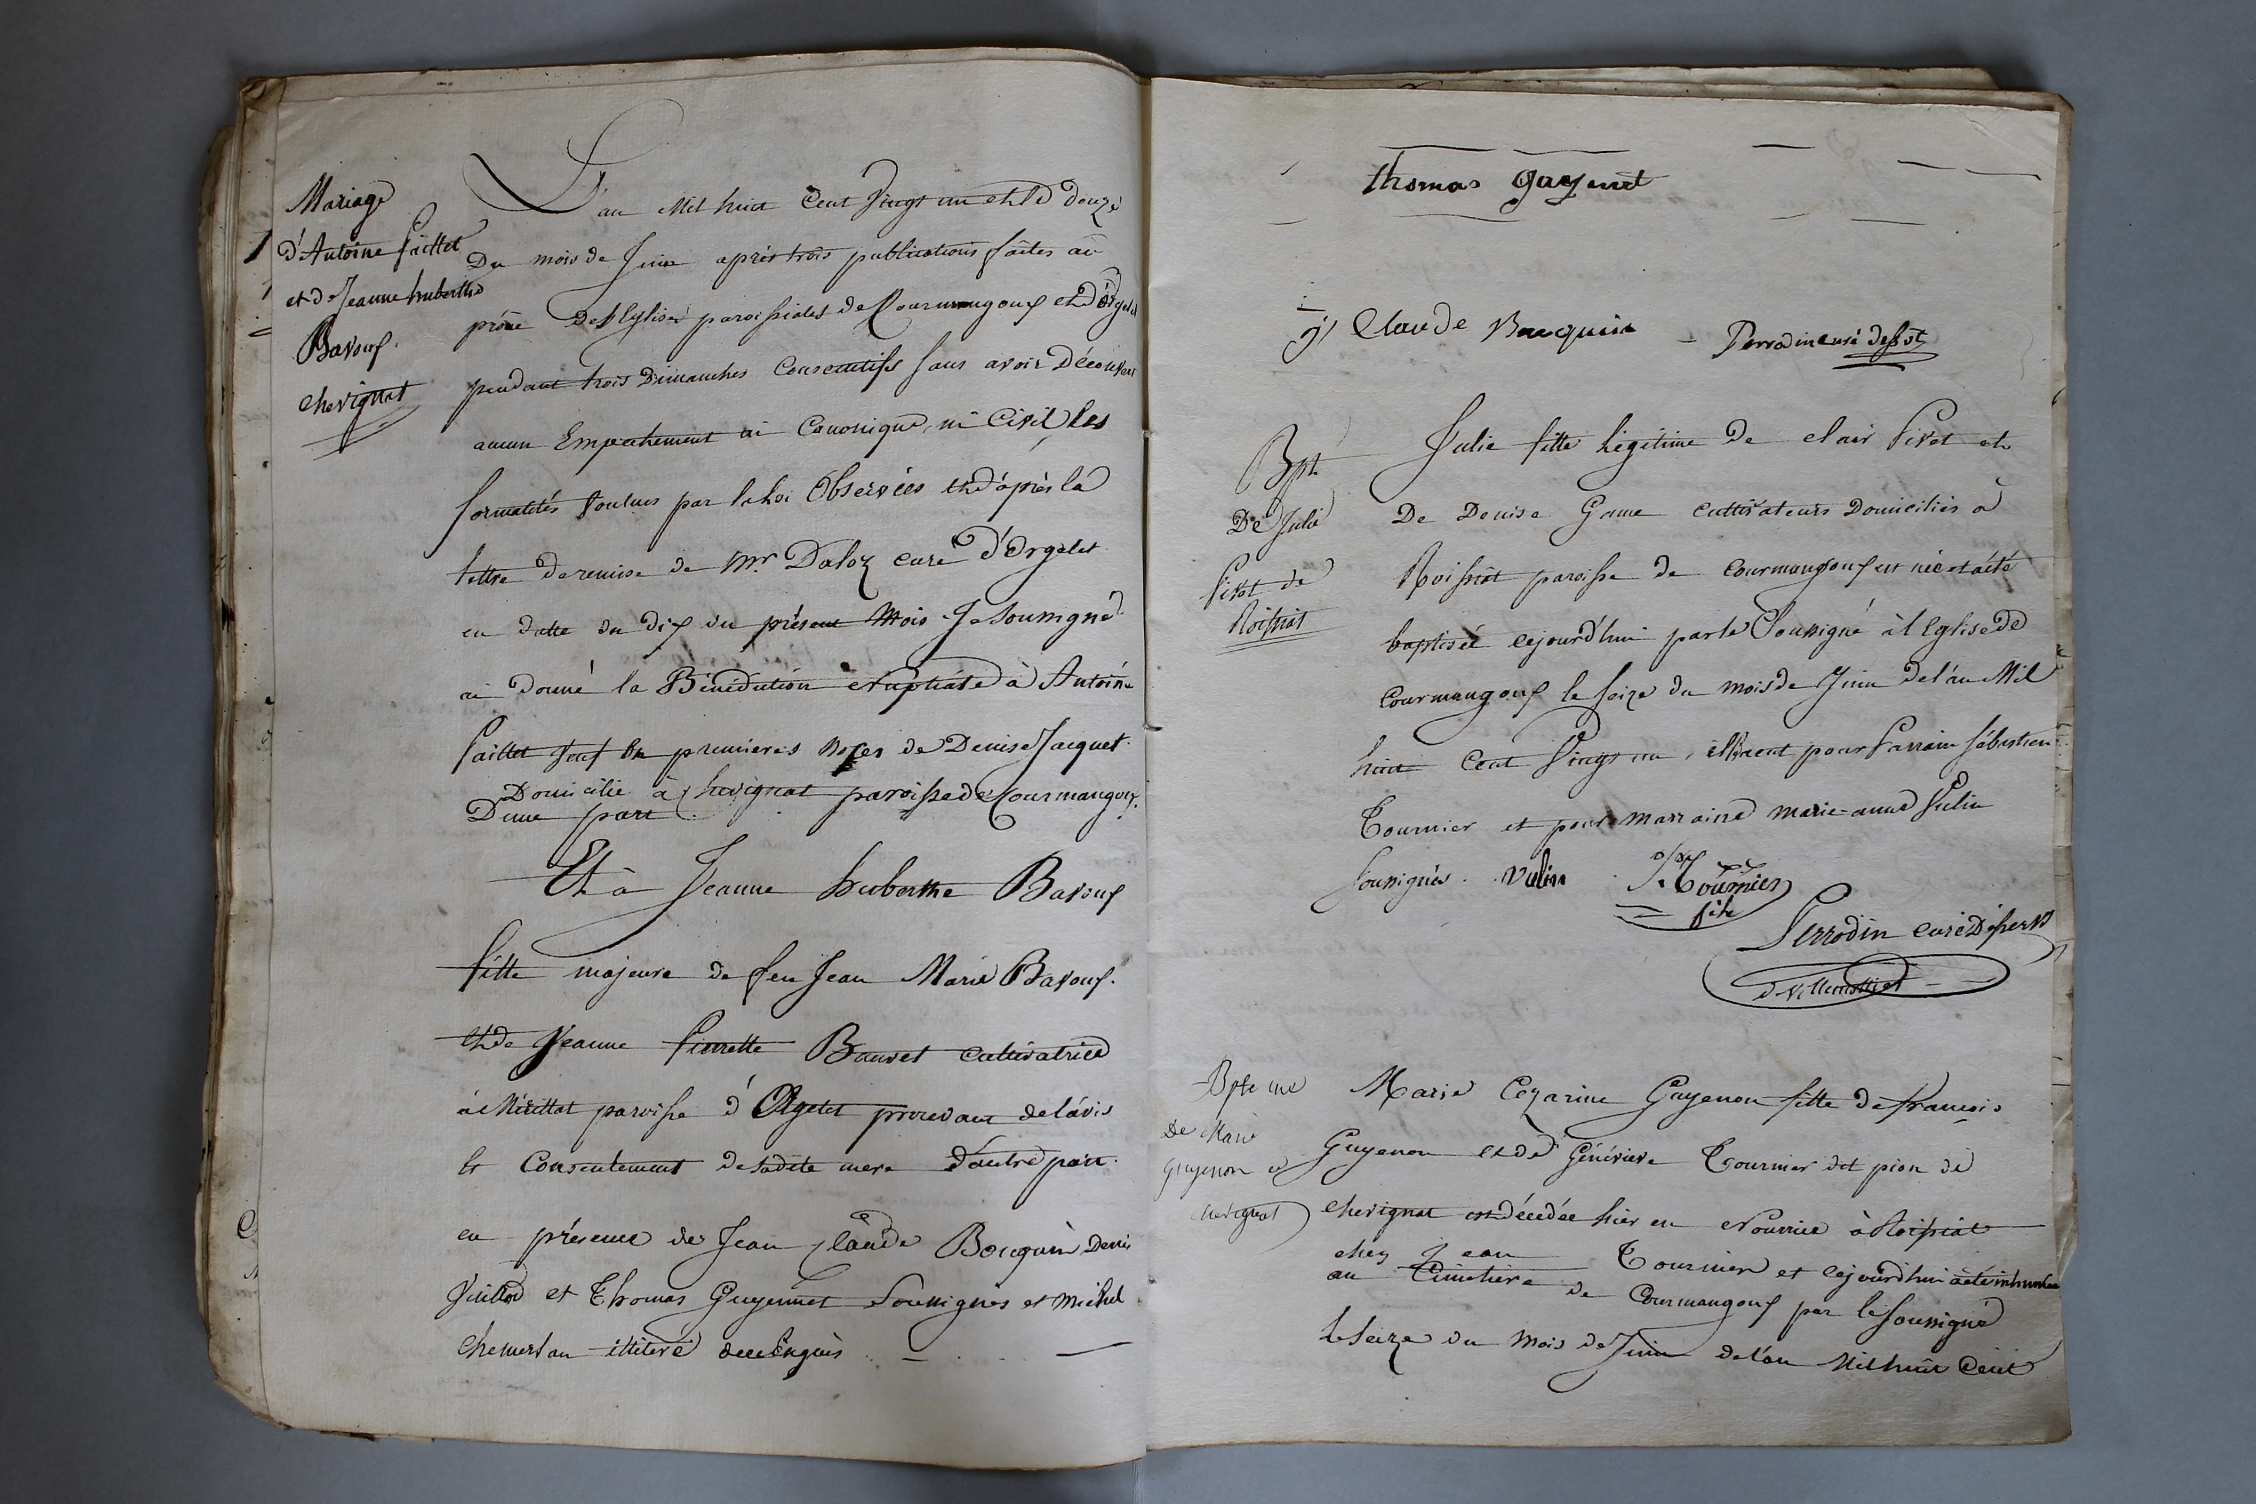 Mariage
d'Antoine Paillet
et de Jeanne huberthe
Bavoux
Chevignat
L'an Mil huit Cent Vingt un et le douze
Du mois de Juin après trois publications faites au
prône Des Eglises paroissiales de Courmangoux et d'Orgelet
pendant trois Dimanches Consecutifs sans avoir Découvert
aucun Empechement ni Canonique, ni Civil, les
formalités Voulues par la Loi Observées et d'après la
lettre de remise de Mr Daloz curé d'Orgelet
en datte du dix du présent Mois Je Soussigné
ai donné la Bénédiction Nuptiale à Antoine
Paillet Veuf en premieres Noces de Denise Jacquet
Domicilié à Chevignat paroisse de Courmangoux
D'une part
Et à Jeanne huberthe Bavoux
fille majeure de feu Jean Marie Bavoux
et de Jeanne Pierrette Bauvet cultivatrice
à Mérillat paroisse d'Orgelet procedant de l'avis
et Consentement de sadite mere d'autre part
en présence de Jean Claude Bocquin Denis
Vuillod et Thomas Guyennet Soussignés et Michel
illiteré
thomas guyenet
j Claude Bocquin Perrodin curé desst
Bpt.
De Julie
Pivet de
Roissiat
Julie fille Légitime de clair Pivet et
De Denise Game cultivateurs Domiciliés à
Roissiat paroisse de Courmangoux est née et a été
baptisée cejourd'hui par le Soussigné à l'Eglise de
Courmangoux le seize du mois de Juin de l'an Mil
huit Cent Vingt un, il eurent pour Parrain Sébastien
Tournier et pour marraine marie-anne Vulin
Soussignés. Vulin S. Tournier
fils
Perrodin curé Dessert
d Villemottier
De Marie
Guyenon
Chevignat
Marie Cezarine Guyenon fille de françois
Guyenon et de Géneviere Tournier dit pion de
Chevignat est décédée hier en Nourrice à Roissiat
chez Jean Tournier et cejourd'hui a été inhumée
au Cimetière de Courmangoux par le Soussigné
le Seize du Mois de Juin de l'an Mil huit Cent